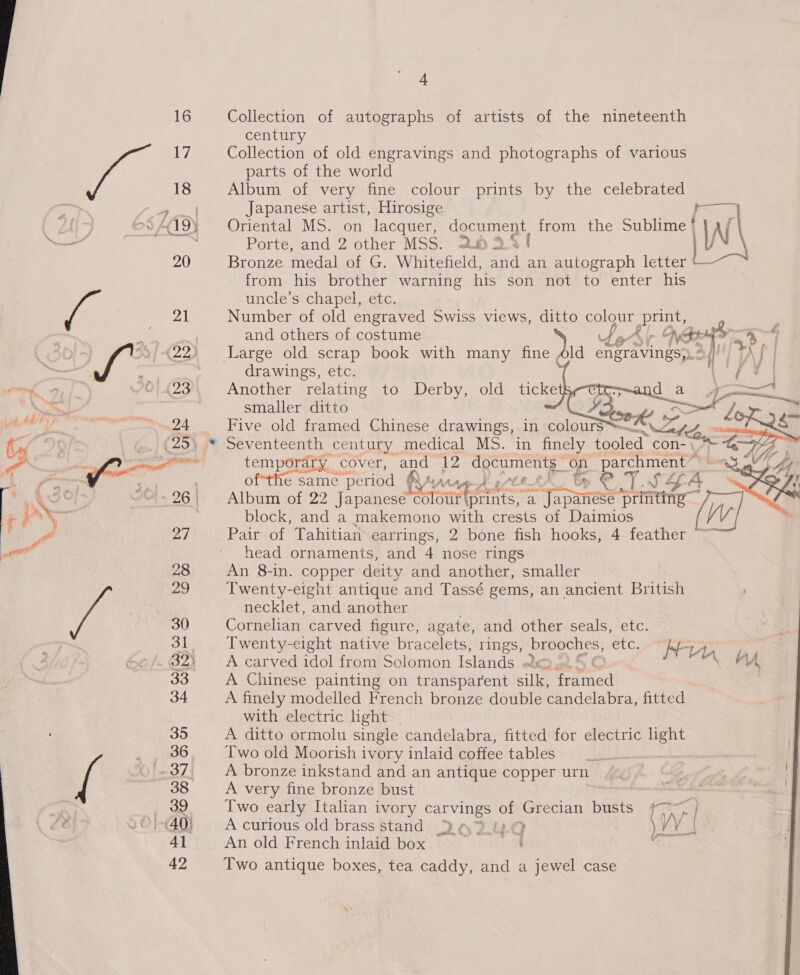 4
16 Collection of autographs of artists of the nineteenth
century
17 Collection of old engravings and photographs of various
parts of the world
18 Album of very fine colour prints by the celebrated
Japanese artist, Hirosige
19 Oriental MS. on lacquer, document from the Sublime
Porte, and 2 other MSS.
20 Bronze medal of G. Whitefield, and an autograph letter
from his brother warning his son not to enter his
uncle's chapel, etc.
21 Number of old engraved Swiss views, ditto colour print,
and others of costume
22 Large old scrap book with many fine old engravings,
drawings, etc.
23 Another relating to Derby, old tickets, etc., and a
smaller ditto
24 Five old framed Chinese drawings, in colours
25 * Seventeenth century medical MS. in finely tooled con-
temporary cover, and 12 documents on parchment
of the same period
26 Album of 22 Japanese colour prints, a Japanese printing
block, and a makemono with crests of Daimios
27 Pair of Tahitian earrings, 2 bone fish hooks, 4 feather
head ornaments, and 4 nose rings
28 An 8-in. copper deity and another, smaller
29 Twenty-eight antique and Tassé gems, an ancient British
necklet, and another
30 Cornelian carved figure, agate, and other seals, etc.
31 Twenty-eight native bracelets, rings, brooches, etc.
32 A carved idol from Solomon Islands
33 A Chinese painting on transparent silk, framed
34 A finely modelled French bronze double candelabra, fitted
with electric light
35 A ditto ormolu single candelabra, fitted for electric light
36 Two old Moorish ivory inlaid coffee tables
37 A bronze inkstand and an antique copper urn
38 A very fine bronze bust
39 Two early Italian ivory carvings of Grecian busts
40 A curious old brass stand
41 An old French inlaid box
42 Two antique boxes, tea caddy, and a jewel case